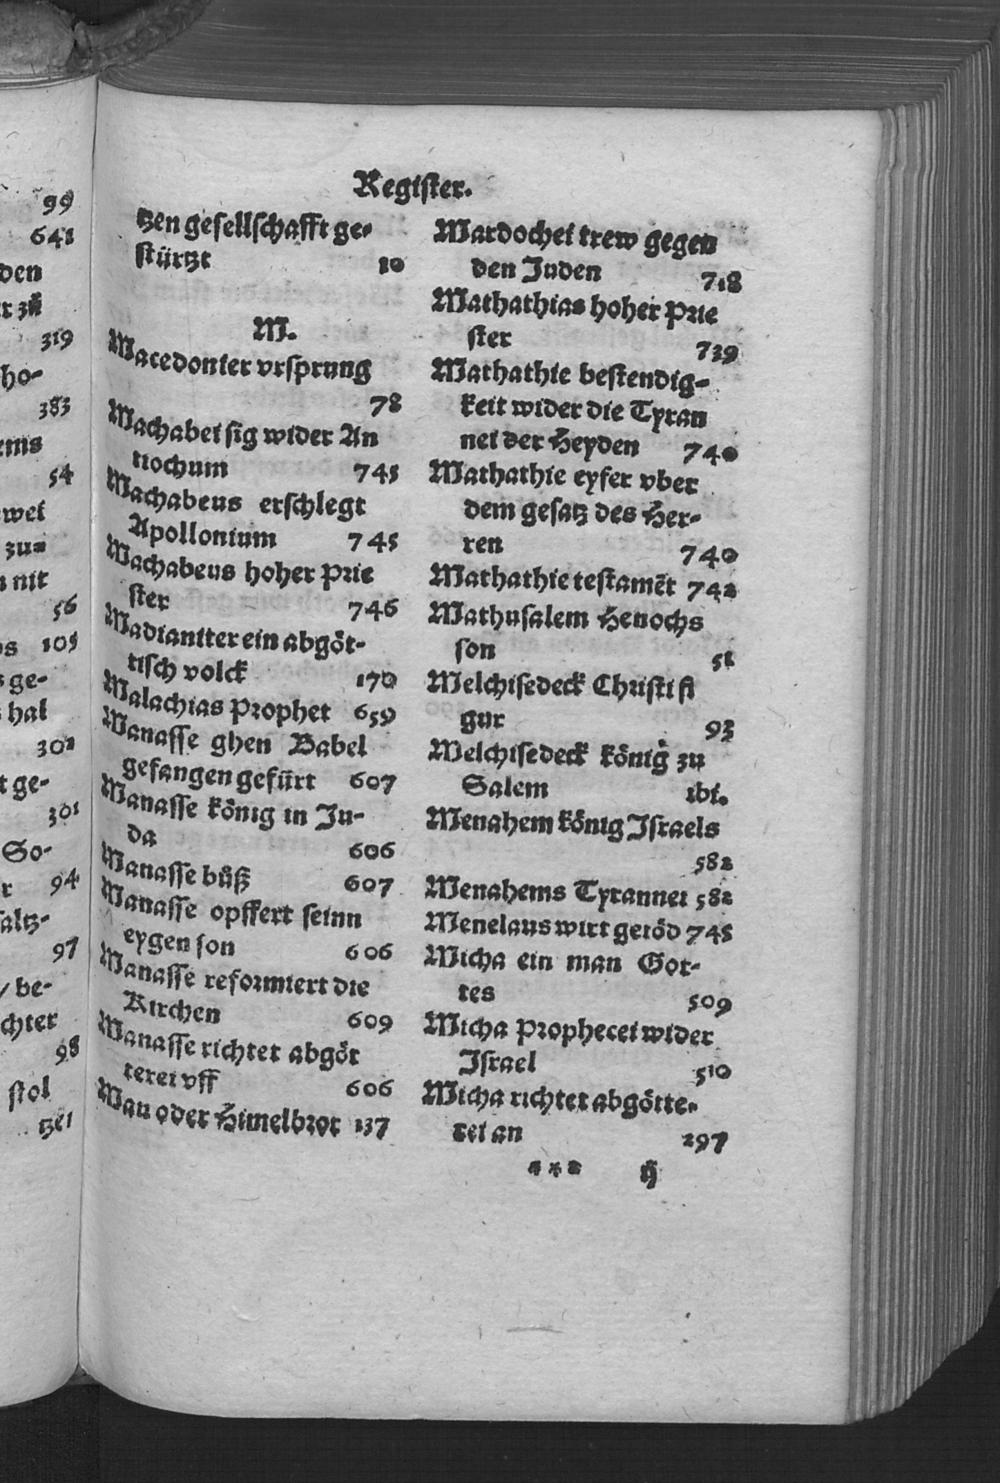 99
641
den
r zů
319
ho-
383
ems
54
wei
zu-
nit
56
s 105
ge-
hal
302
t ge-
301
So-
r 94
saltz-
97
/ be-
chter
98
stol
tzei
Register.
tzen gesellschafft ge-
stürtzt 10
M.
Macedonier vrsprung
78
Machabei sig wider An
tiochum 745
Machabeus erschlegt
Apollonium 745
Machabeus hoher Prie
ster 746
Madianiter ein abgöt-
tisch volck 170
Malachias Prophet 659
Manasse ghen Babel
gefangen gefürt 607
Manasse könig in Ju-
da 606
Manasse bůß 607
Manasse opffert seinn
eygen son 606
Manasse reformiert die
Kirchen 609
Manasse richtet abgöt
terei vff 606
Man oder Himelbrot 137
Mardochei trew gegen
den Juden 718
Mathathias hoher Prie
ster 739
Mathathie bestendig-
keit wider die Tyran
nei der Heyden 740
Mathathie eyfer vber
dem gesatz des Her-
ren 740
Mathathie testamēt 742
Mathusalem Henochs
son 51
Melchisedeck Christi fi
gur 93
Melchisedeck könig zu
Salem ibi.
Menahem könig Israels
582
Menahems Tyrannei 582
Menelaus wirt getöd 745
Micha ein man Got-
tes 509
Micha Prophecei wider
Israel 510
Micha richtet abgötte-
rei an 297
*** ij